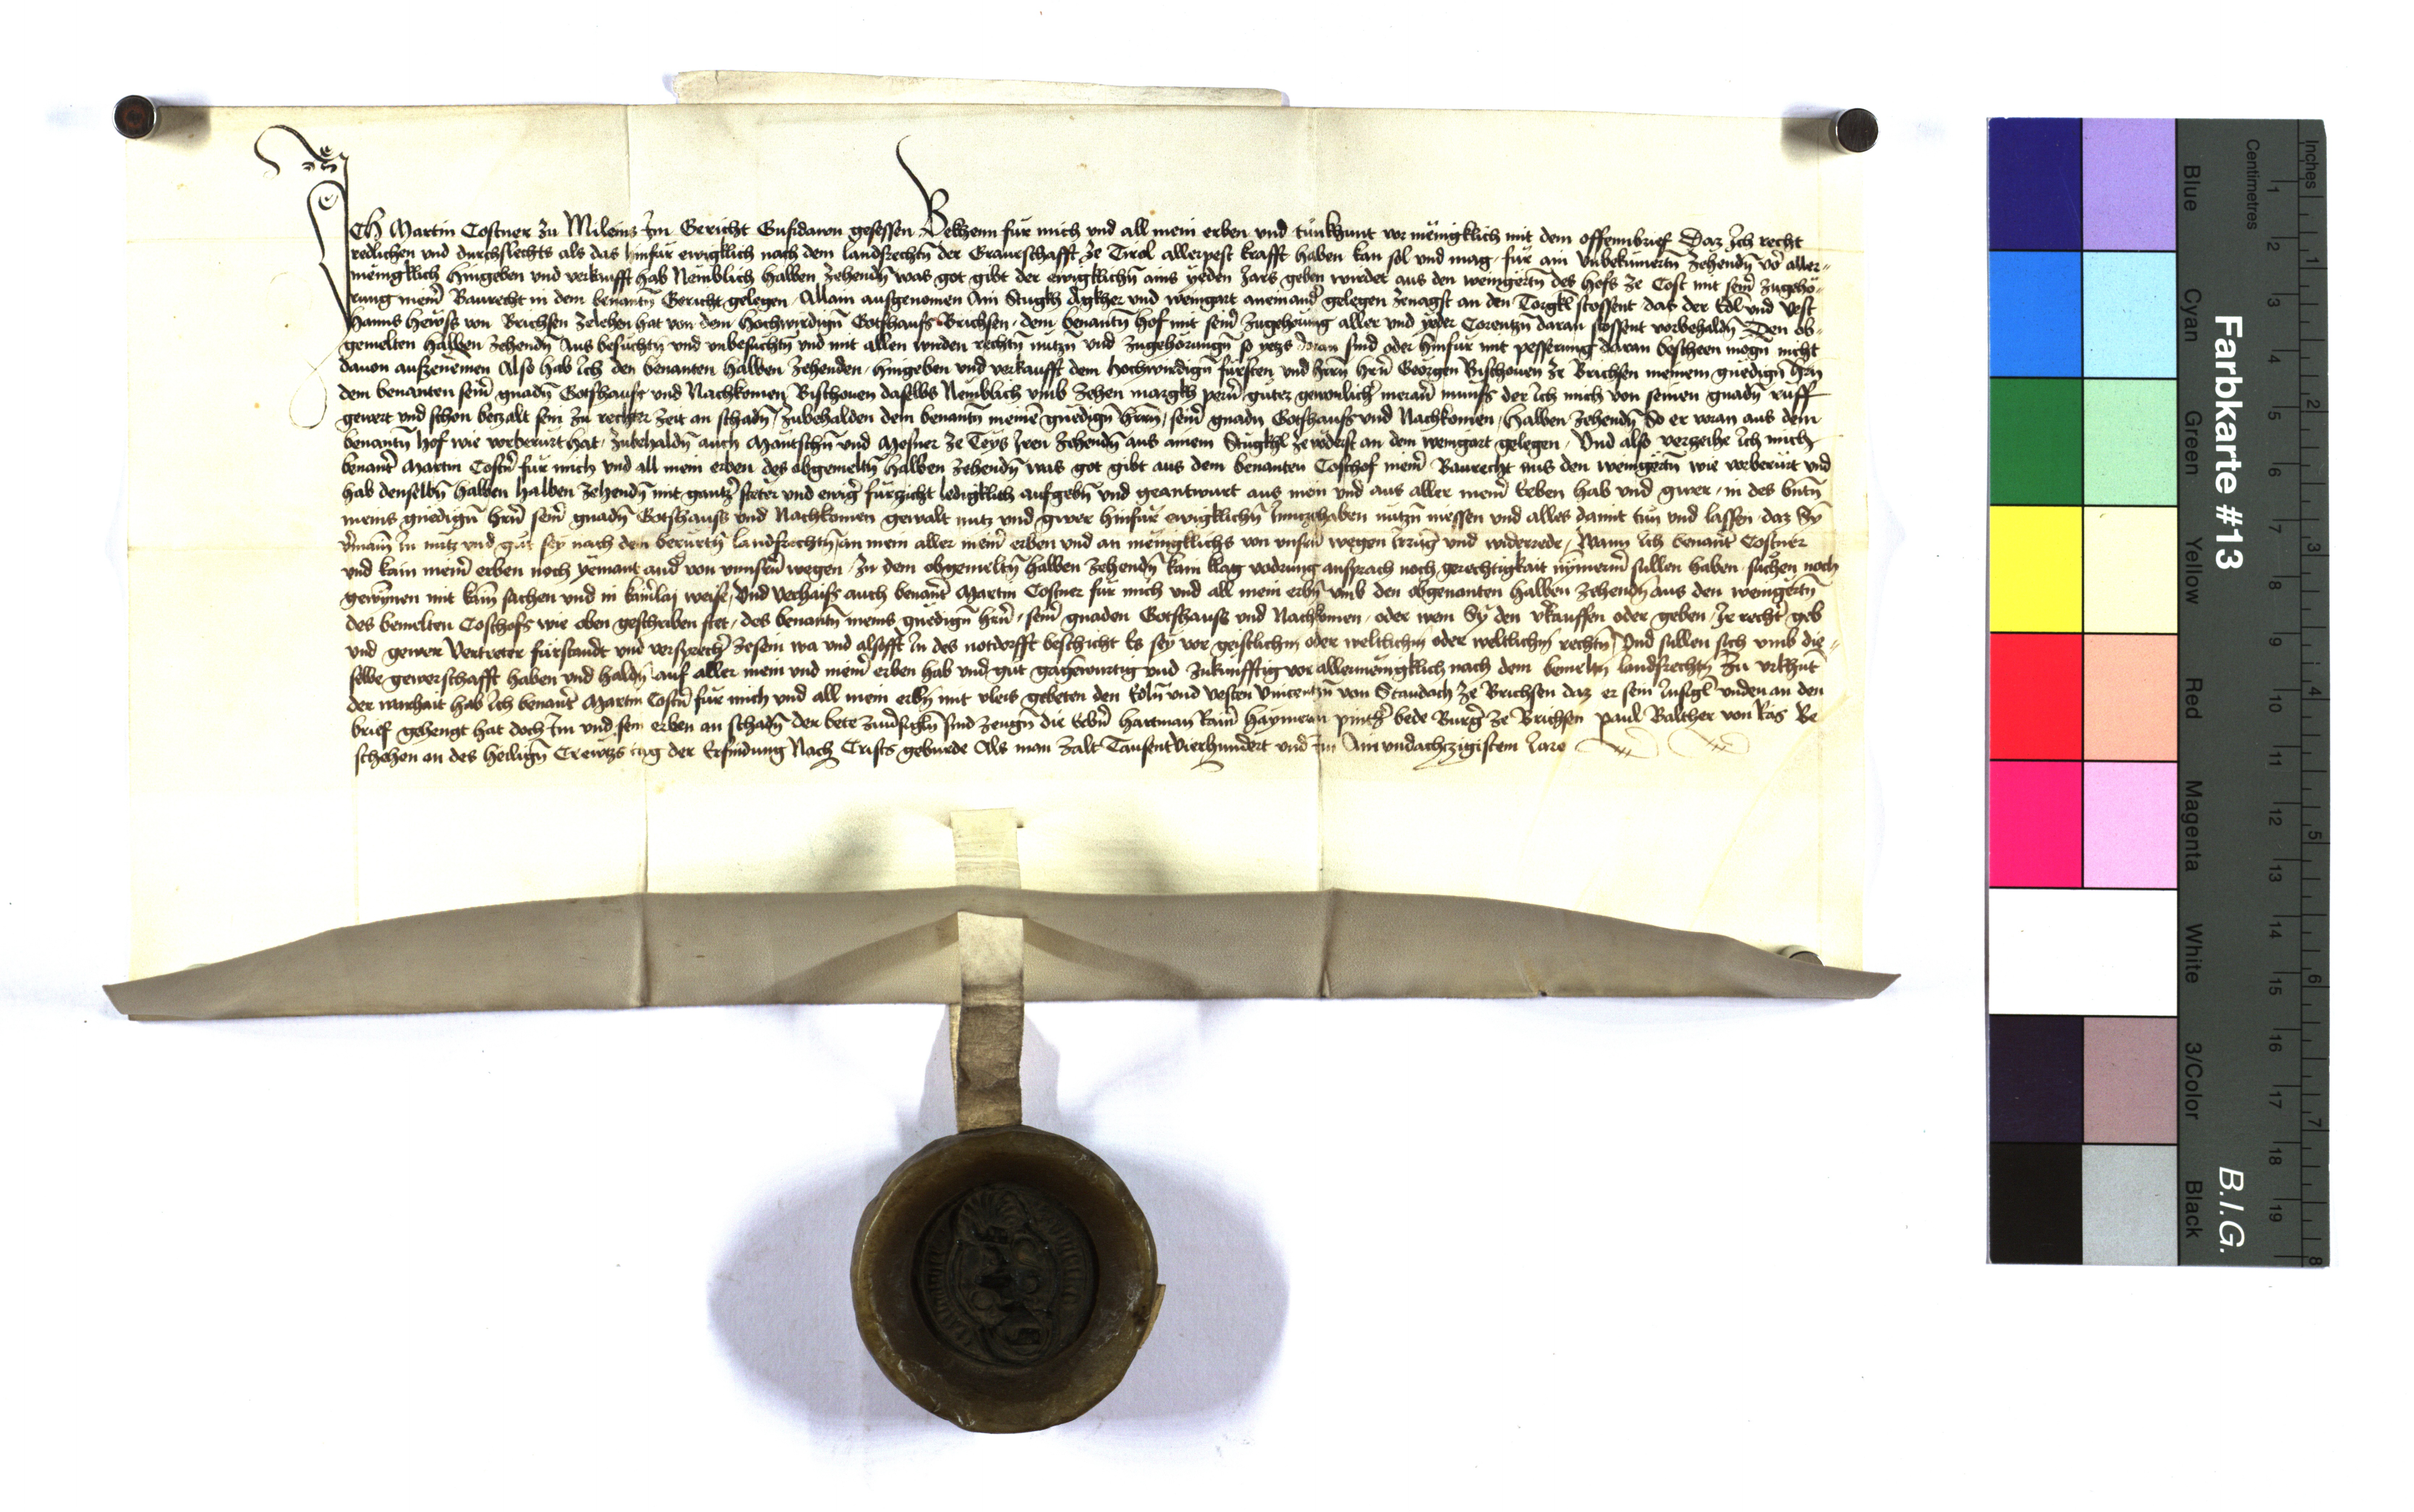 Ich Martin Costner zu Mileins Im Gericht Gufidawn gesessen Bekhenn für mich und all mein erben und tünkhunt vor menigklich mit dem offembrief Daz Ich recht
redlichen und durchslechts als das hinfür ewigklich nach dem landsrechtn̄ der Grauschafft ze Tirol allerpest krafft haben kan sol und mag für ain vnbekümertn̄ zehendn̄ vor aller-
menigklich hingeben und verkaufft hab Nemblich halben zehendn̄ was got gibt der ewigklichn̄ ains yeden Jars geben wirdet aus den weingertn̄ des hofs ze Cost mit seiner zugehö-
rung meiner Baurecht in dem benantn̄ Gericht gelegen Allain ausgenomen Ain Stugkh Agkher und weingart aneinander gelegen zenagst an den Torgkl stossent das der Edl und Vest
hanns von Brichsen zelehen hat von dem hochwirdign̄ Gotshaus Brichsen dem benantn̄ hof mit seiner zugehorung aller und yeder daran stossent vorbehaldn̄ Den ob-
gemelten halben zehendn̄ Aus besuchtn̄ und unbesuchtn̄ und mit allen wirden rechtn̄ nutzn̄ und zugehorungn̄ so yetz daran sind oder hinfür mit pesserung daran bescheen mogn̄ nicht
dauon aufzenemen Also hab Ich den benanten halben zehenden hingeben und verkaufft dem hochwirdign̄ fürsten und hern hern Georgen Bischouen ze Brichsen meinem gnedign̄ hrn
dem benanten seiner gnadn̄ Gotshaus und Nachkomen Bischouen daselbs Nemblich umb zehen margkh perner guter gewonlicher meraner münss der Ich mich von seinen gnadn̄ ruff
gewert und schon betzalt sein zu rechter zeit an schadn̄ zubehalden dem benantn̄ meinem gnedign̄ herrn seiner gnadn Gotshaus und Nachkomen halben zehendn̄ So er voran aus dem
benantn̄ hof wie vorberürt hat zubehaldn̄ auch und Mesner ze Teys Iren zehendn̄ aus ainem Stugkhl ze vöderst an dem weingart gelegen Und also verzeihe Ich mich
benanter Martin Costner für mich und all mein erben des obgemeltn̄ halben zehendn̄ was got gibt aus dem benanten Costhof meiner Baurecht aus den weingertn̄ wie vorberürt und
hab denselbn̄ halben halben zehendn̄ mit gantzer steter und ewiger fürzicht ledigklich aufgebn̄ und geantwurt aus mein und aus aller meiner Erben hab und gwer in des bntn̄
meins gnedign̄ hrn̄ seiner gnadn̄ Gotshaus und Nachkomen gewalt nutz und gwer hinfür ewigklichn̄ Innzehaben nutzn̄ niessen und alles damit tun und lassen daz Sy
In nutz und gut sey nach dem berürtn̄ landsrechtn̄ an mein aller meiner erben und an menigklichs von unsern wegen Irrüng und widerrede Wann Ich benanter Costner
und kain meiner erben noch yemant ander von unnsern wegen zu dem obgemeltn̄ halben zehendn̄ kain klag vodrung ansprach noch gerechtigkait nymermer sullen haben suchen noch
gewynnen mit kain sachen und in kainerlai weise Und Verhaiss auch benanter Martin Costner für mich und all mein erbn̄ umb den obgenanten halben zehendn̄ aus den weingertn̄
des bemelten Costhofs wie oben geschriben stet des benantn̄ meins gnedign̄ hrn̄ seiner gnaden Gotshaus und Nachkomen oder wem Sy den vkauffen oder geben Ir recht geb
und gewer Vertreter fürstandt und versprecher zesein wa und alsofft In des notdorfft beschicht Es sey vor geistlichn̄ oder weltlichn̄ oder weltlichn̄ rechtn̄ Und sullen sich umb die-
selbe gewerschafft haben und haldn̄ auf aller mein und meiner erben hab und gut gagenwurtig und zukunfftig vor allermenigklich nach dem bemeltn̄ landsrechtn̄ Zu urkhunt
der warhait hab Ich benanter Martin Costner für mich und all mein erbn̄ mit vleis gebeten den Edln̄ und vesten Vincentzn̄ von Staudach ze Brichsen daz er sein Insigl unden an den
brief gehengt hat doch Im und sein erben an schadn̄ der bete zeugn̄ die Erbern hartman haymeran bede Burger ze Brichsen paul Balther von Be
schehen an des heilign̄ Crewtzs tag der Erfindung Nach Crists geburde Als man zalt Tausent Vierhundert und Im Ain undachtzigistem Jare
Farbkarte #13
B.I.G.
Blue
Cyan
Green
Yellow
Red
Magenta
White
3/Color
Black
Centimetres
1 2 3 4 5 6 7 8 9 10 11 12 13 14 15 16 17 18 19
Inches
1 2 3 4 5 6 7 8